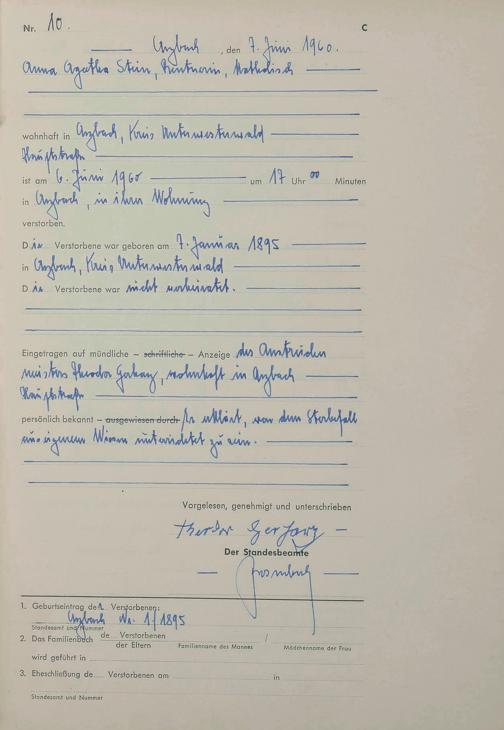 Nr. 10. C
Arzbach, den 7. Juni 1960.
Anna Agatha Stein, Rentnerin, Katholisch
wohnhaft in Arzbach, Kreis Unterwesterwald
Hauptstraße
ist am 6. Juni 1960 um 17 Uhr 00 Minuten
in Arzbach, in ihrer Wohnung
verstorben.
D ie Verstorbene war geboren am 7. Januar 1895
in Arzbach, Kreis Unterwesterwald
D ie Verstorbene war nicht verheiratet.
Eingetragen auf mündliche – schriftliche – Anzeige des
meisters Theodor wohnhaft in Arzbach
Hauptstraße
persönlich bekannt – ausgewiesen durch Er erklärt, von dem Sterbefall
aus eigenem Wissen unterrichtet zu sein.
Vorgelesen, genehmigt und unterschrieben
Theodor
Der Standesbeamte
1. Geburtseintrag der Verstorbenen:
Arzbach Nr. 1/1895
Standesamt und Nummer
2. Das Familienbuch de Verstorbenen
der Eltern Familienname des Mannes / Mädchenname der Frau
wird geführt in
3. Eheschließung de Verstorbenen am in
Standesamt und Nummer